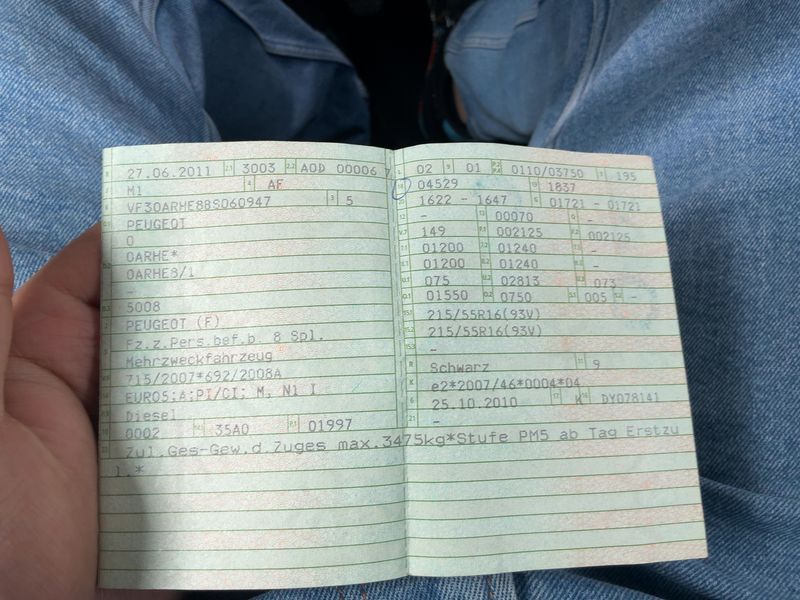 27.06.2011 3003 AOD 00006 7
M1 AF
VF30ARHE88S060947 5
PEUGEOT
0
0ARHE*
0ARHE8/1
-
5008
PEUGEOT (F)
Fz.z.Pers.bef.b. 8 Spl.
Mehrzweckfahrzeug
715/2007*692/2008A
EURO5;A;PI/CI; M, N1 I
Diesel
0002 35A0 01997
02 01 0110/03750 195
04529 1837
1622 - 1647 01721 - 01721
- 00070 -
149 002125 002125
01200 01240 -
01200 01240 -
075 02813 073
01550 0750 005 -
215/55R16(93V)
215/55R16(93V)
-
Schwarz 9
e2*2007/46*0004*04
25.10.2010 K DY078141
-
Zul.Ges-Gew.d.Zuges max.3475kg*Stufe PM5 ab Tag Erstzu
l.*